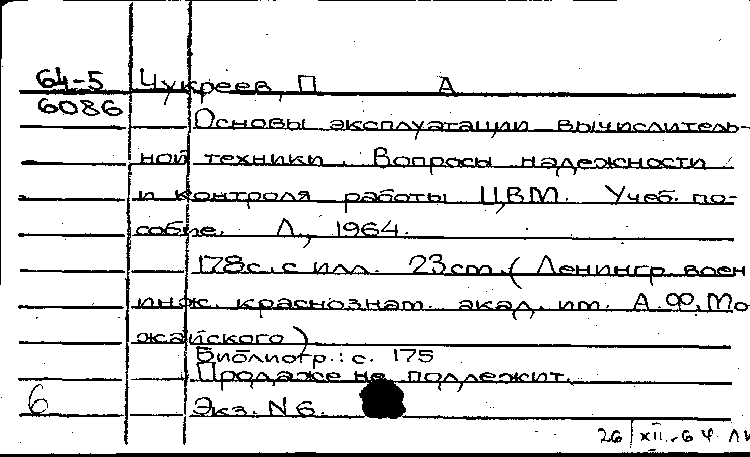 64-5 Чукреев, П А
6086
Основы эксплуатации вычислитель-
ной техники. Вопросы надежности
и контроля работы ЦВМ. Учеб. по-
собие. Л., 1964.
178с. с илл. 23cm. (Ленингр. воен
инж. краснознам. акад. им. А.Ф.Мо
жайского)
Библиогр.: с. 175
Продаже не подлежит.
6 Экз. N6.
26/XII-64 ЛИ